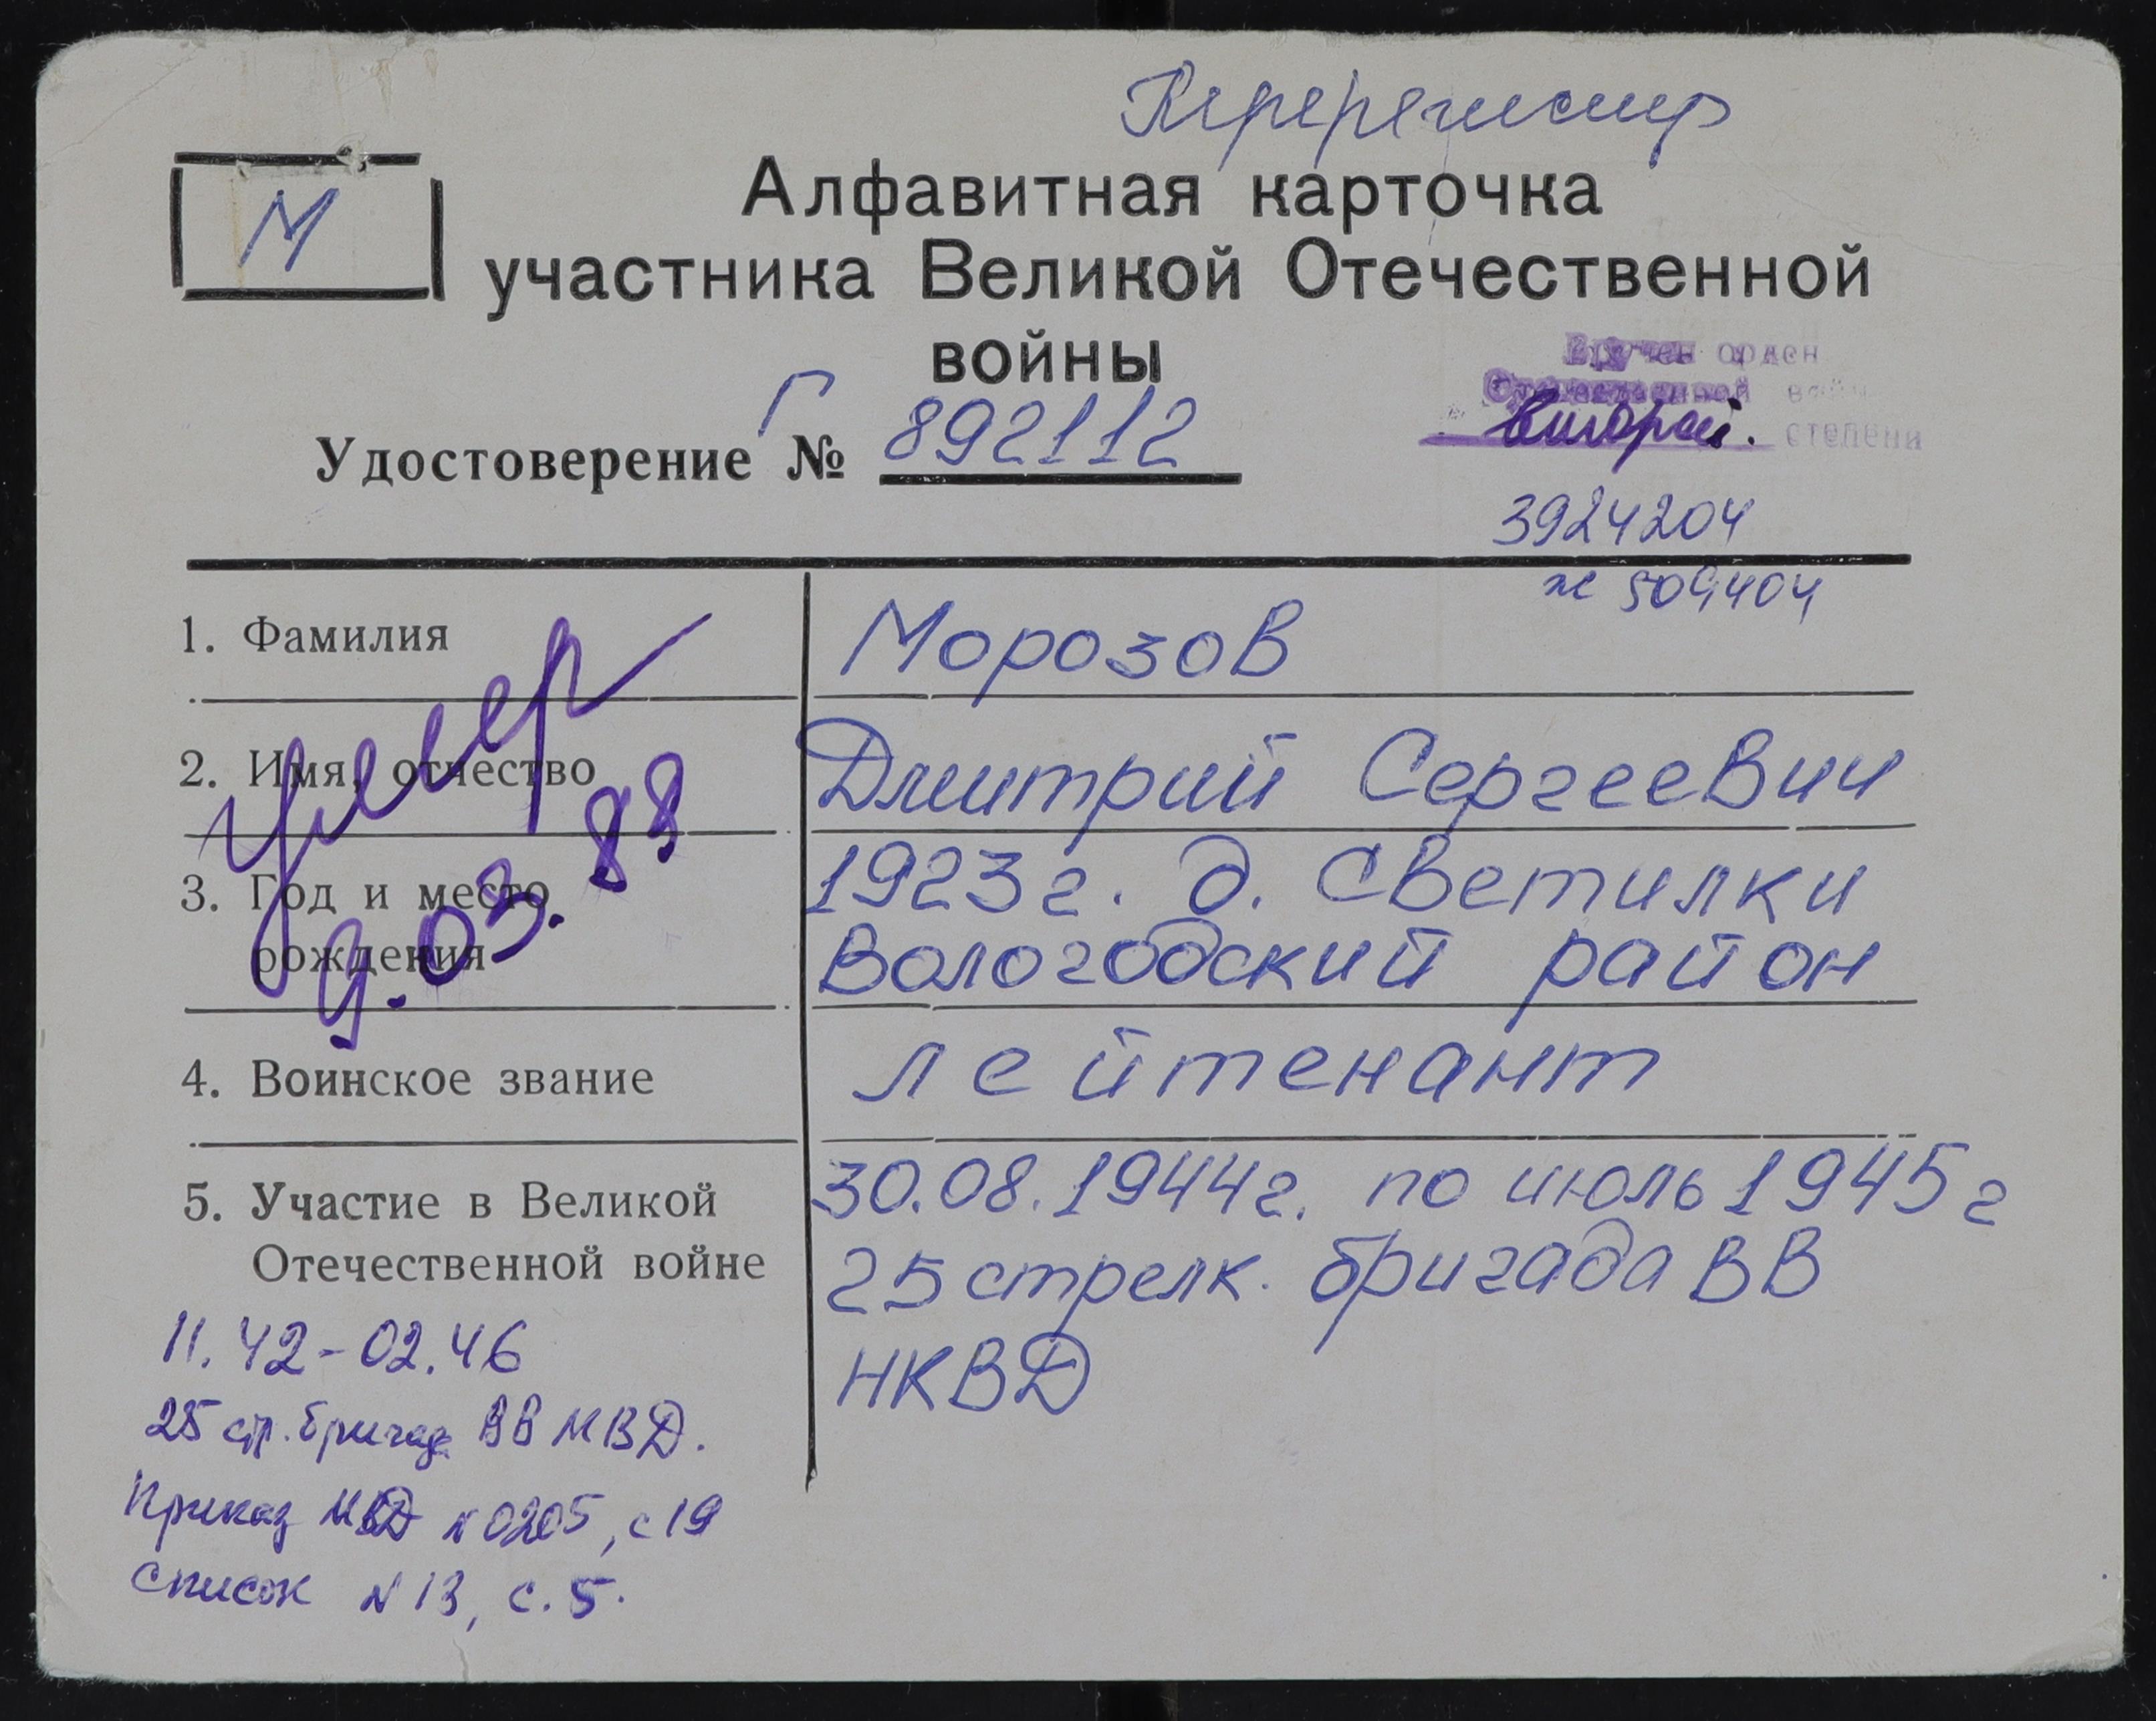 Перерегистр
М
Алфавитная карточка
участника Великой Отечественной
войны
Вручен орден
Отечественной войны
второй. степени
Удостоверение Г № 892112
3924204
ж 509404
1. Фамилия Морозов
2. Имя, отчество Дмитрий Сергеевич
умер
9.03.88
3. Год и место 1923г. д. Светилки
рождения Вологодский район
4. Воинское звание лейтенант
5. Участие в Великой 30.08.1944г. по июль 1945г
Отечественной войне 25 стрелк. бригада ВВ
НКВД
11.42-02.46
25 стр. бригад ВВ МВД.
Приказ МВД N 0205, с 19
список N 13, с. 5.